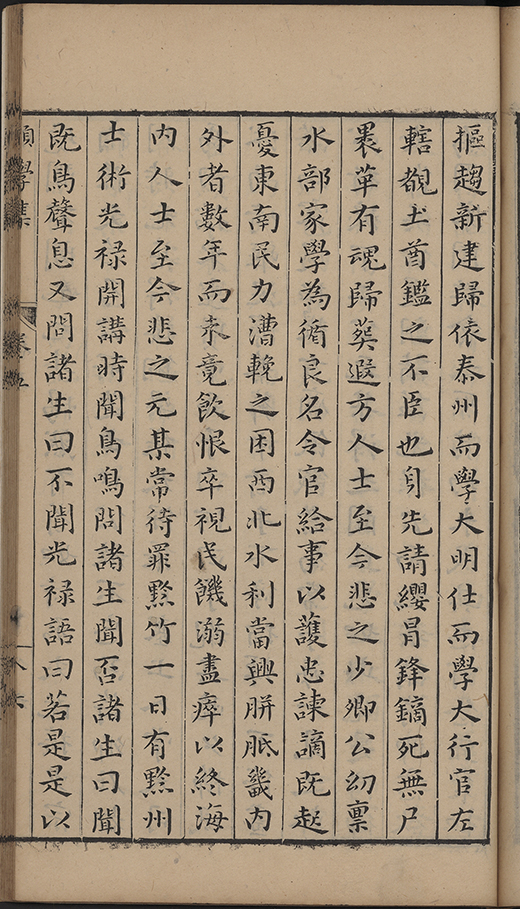 摳趨新建歸依泰州而學大明仕而學大行官左
轄覩土酋鑑之不臣也身先請纓冒鋒鏑死無尸
裹革有魂歸葬遐方人士至今悲之少卿公幼稟
水部家學為循良名令官給事以護忠諫謫既起
憂東南民力漕輓之困西北水利當興胼胝畿內
外者數年而未竟飲恨卒視民饑溺盡瘁以終海
內人士至今悲之元某常待罪黔竹一日有黔州
士術光祿開講時聞鳥鳴問諸生聞否諸生曰聞
既鳥聲息又問諸生曰不聞光祿語曰若是是以
願學集
卷五
八 六